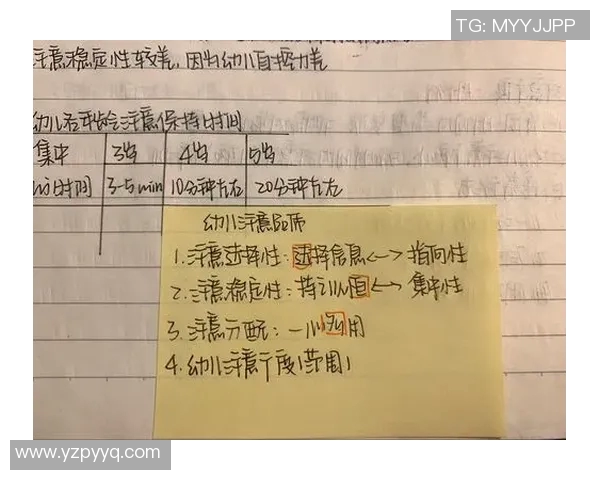 TG: MYYJJPP
注意稳定性较差,因为幼儿自控力差
幼儿各年龄注意保持时间
集中 3岁 4岁 5岁
时间 3-5min 10分钟左右 20分钟左右
幼儿注意品质
1.注意选择性:选择信息<—>指向性
2.注意稳定性:持 恒<—>集中性
3.注意分配:一心 用
4.幼儿注意广度(范围)
www.yzpyyq.com